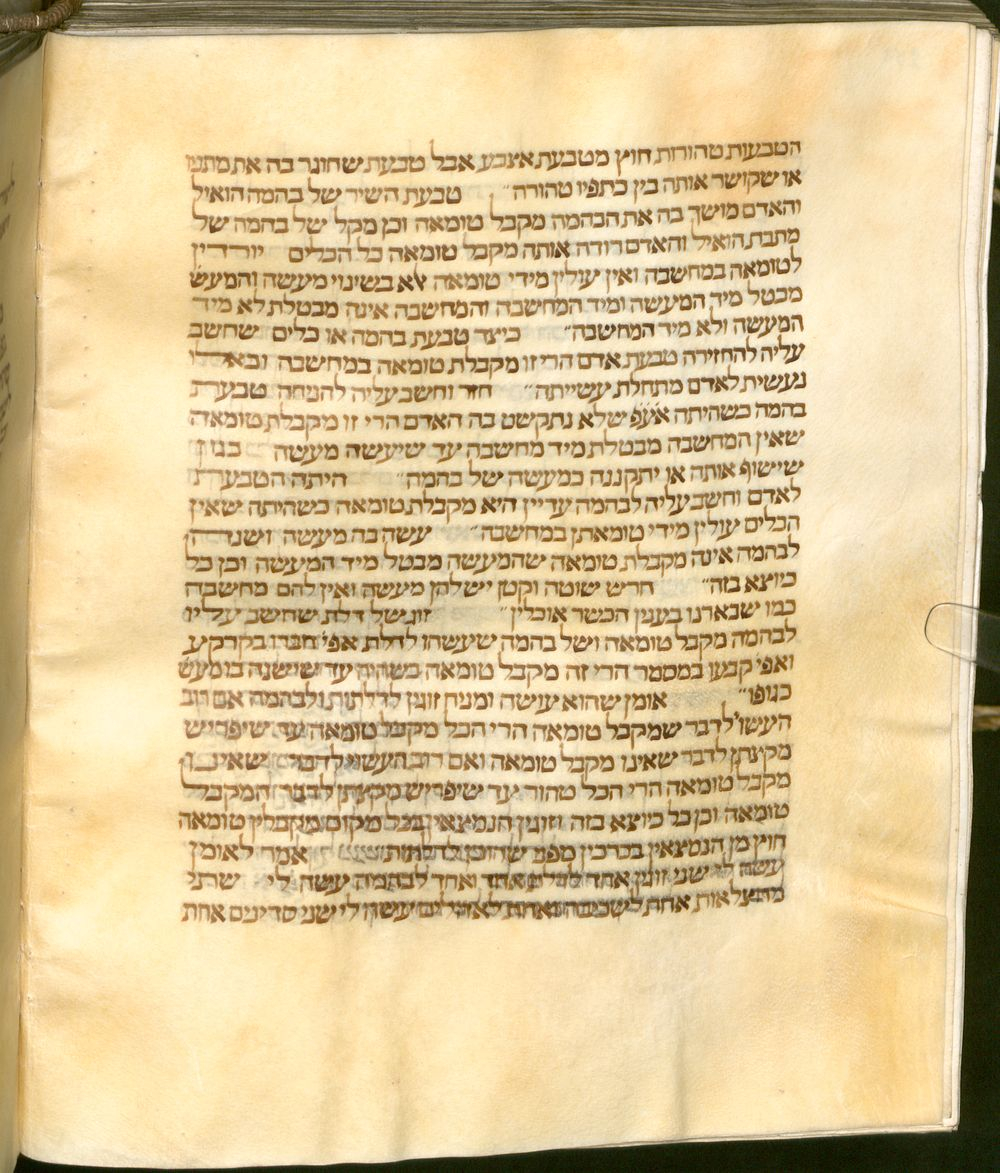 הטבעות טהורות חוץ מטבעת אצבע אבל טבעת שחוגר בה את מתניו
או שקושר אותה בין כתפיו טהורה״ טבעת השיר של בהמה הואיל
והאדם מושך בה את הבהמה מקבל טומאה וכן מקל של בהמה של
מתכת הואיל והאדם רודה אותה מקבל טומאה כל הכלים יורדין
לטומאה במחשבה ואין עולין מידי טומאה אלא בשינוי מעשה והמעש
מבטל מיד המעשה ומיד המחשבה והמחשבה אינה מבטלת לא מיד
המעשה ולא מיד המחשבה״ כיצד טבעת בהמה או כלים שחשב
עליה להחזירה טבעת אדם הרי זו מקבלת טומאה במחשבה וכאילו
נעשית לאדם מתחלת עשייתה״ חזר וחשב עליה להניחה טבעת
בהמה כשהיתה אע״פ שלא נתקשט בה האדם הרי זו מקבלת טומאה
שאין המחשבה מבטלת מיד מחשבה עד שיעשה מעשה כגון
שישוף אותה או יתקננה כמעשה של בהמה״ היתה הטבעת
לאדם וחשב עליה לבהמה עדיין היא מקבלת טומאה כשהיתה שאין
הכלים עולין מידי טומאתן במחשבה״ עשה בה מעשה ושנה
לבהמה אינה מקבלת טומאה שהמעשה מבטל מיד המעשה וכן כל
כיוצא בזה״ חרש שוטה וקטן יש להן מעשה ואין להם מחשבה
כמו שבארנו בענין הכשר אוכלין״ זוג של דלת שחשב עליו
לבהמה מקבל טומאה ושל בהמה שיעשהו לדלת אפי׳ חברו בקרקע
ואפי׳ קבעו במסמר הרי זה מקבל טומאה כשהיה עד שישנה בו מעש
בגופו״ אומן שהוא עושה ומניח זוגין לדלתות ולבהמה אם רוב
העשוי לדבר שמקבל טומאה הרי הכל מקבל טומאה עד שיפריש
מקצתן לדבר שאינו מקבל טומאה ואם רוב העשוי לדבר שאינו
מקבל טומאה הרי הכל טהור עד שיפריש מקצתן לדבר המקבל
טומאה וכן כל כיוצא בזה וזוגין הנמצאין בכל מקום מקבלין טומאה
חוץ מן הנמצאין בכרכין מפני שרובן לדלתות אמר לאומן
עשה לי שני זוגין אחד לדלת אחד ואחד לבהמה עשה לי שתי
מחצלאות אחת לשכיבה ואחת לאהלים עשה לי שני סדינים אחת